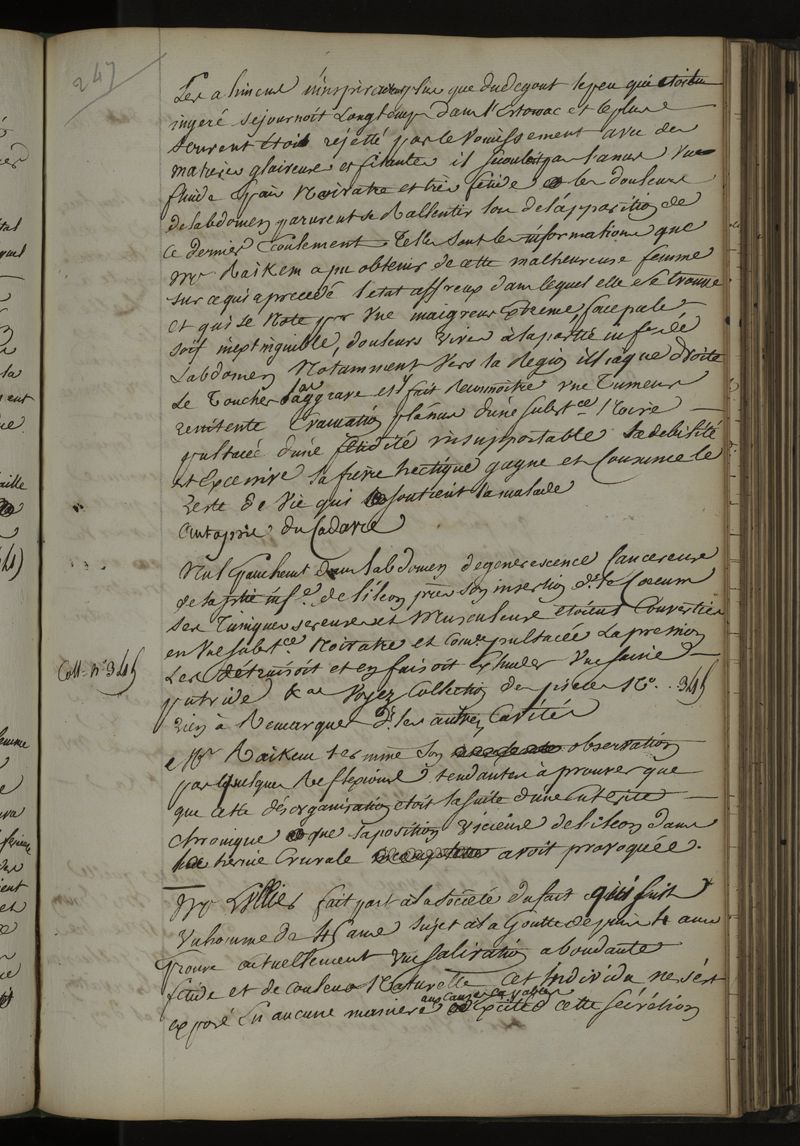 247
Les alimens n'inspiroient plus que du degout le peu qui etoit
ingeré sejournoit Longtemps dans l'Estomac et le plus
Souvent étoit rejetté par le Vomissement avec des
matieres glaireuses et filantes il s'ecouloit par l'anus Un
fluide Noiratre et très fétide les douleurs
de labdomen parurent se Rallentir lors de l'apparition de
Ce dernier Ecoulement Telles sont les informations que
Mr Raikem a pu obtenir de cette malheureuse femme
sur ce qui a precedé l'etat affreux dans lequel elle se trouve
et qui se Note par Une maigreur Extreme, face pale
soif inextinguible, douleurs vives à la partie inf de
Labdomen Notamment Vers la Region illiaque droite
Le Toucher les aggrave et fait Reconnoitre une Tumeur
renitente par l'anus d'une subst.ce Noire
pultacée d'une fétidité insupportable La debilité
est Excessive la fievre hectique gagne et Consume le
reste de Vie qui soutient la malade
Autopsie du Cadavre
Nul Epanchement dans labdomen degenerescence Cancereuse
de la ptie inf.e de lileon près son insertion ds le Coecum
Ses Tuniques sereuses et Musculeuse etoient Converties
en Une subst.ce Noiratre et comme pultacée La pression
Les détruisoit et en faisoit Exhuder Une sanie
putride &a Voyez Collection des pieces No. 345
Coll. n.o 345
rien à Remarquer ds les autres Cavités
Mr Raikem termine son observation
par quelques Reflexions tendantes à prouver que
que cette désorganisation etoit la suite d'une enterite
chronique que la position vicieuse de lileon dans
la hernie Crurale avoit provoquée.
Mr fait part à la Société du fait qui suit
Un homme de ans Sujet à la Goutte depuis 4 ans
prouve actuellement Une Salivation abondante
fétide et de couleur Naturelle Cet Individu ne s'est
exposé En aucune maniere aux Causes Capables d'Exciter cette sécrétion